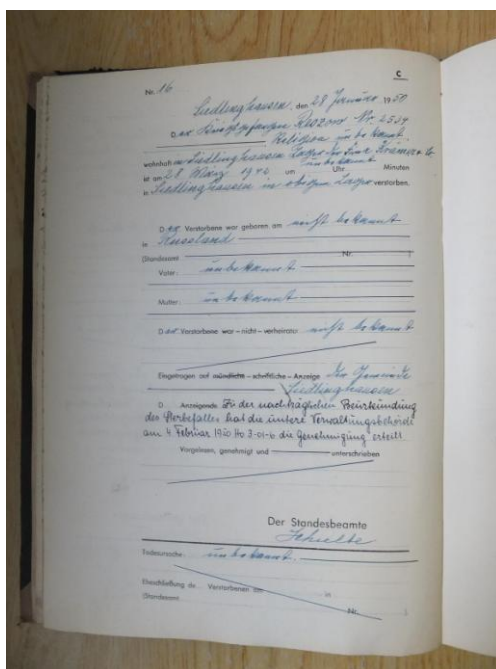 C
Nr. 16
Siedlinghausen, den 28 Januar 1950
D er Kriegsgefangene Nr. 2534
Religion unbekannt
wohnhaft in Siedlinghausen Lager der Firma
unbekannt
ist am 28 März 1942 um Uhr Minuten
in Siedlinghausen in obigem Lager verstorben.
D er Verstorbene war geboren am nicht bekannt
in Russland
(Standesamt Nr. )
Vater: unbekannt
Mutter: unbekannt
D er Verstorbene war – nicht – verheiratet nicht bekannt
Eingetragen auf mündliche – schriftliche – Anzeige der Gemeinde
Siedlinghausen
D Anzeigende Zu der nachträglichen Beurkundung
des Sterbefalles hat die untere Verwaltungsbehörde
am 4 Februar 1950 die Genehmigung erteilt.
Vorgelesen, genehmigt und unterschrieben
Der Standesbeamte
Schulte
Todesursache: unbekannt
Eheschließung de Verstorbenen am in
(Standesamt Nr. )